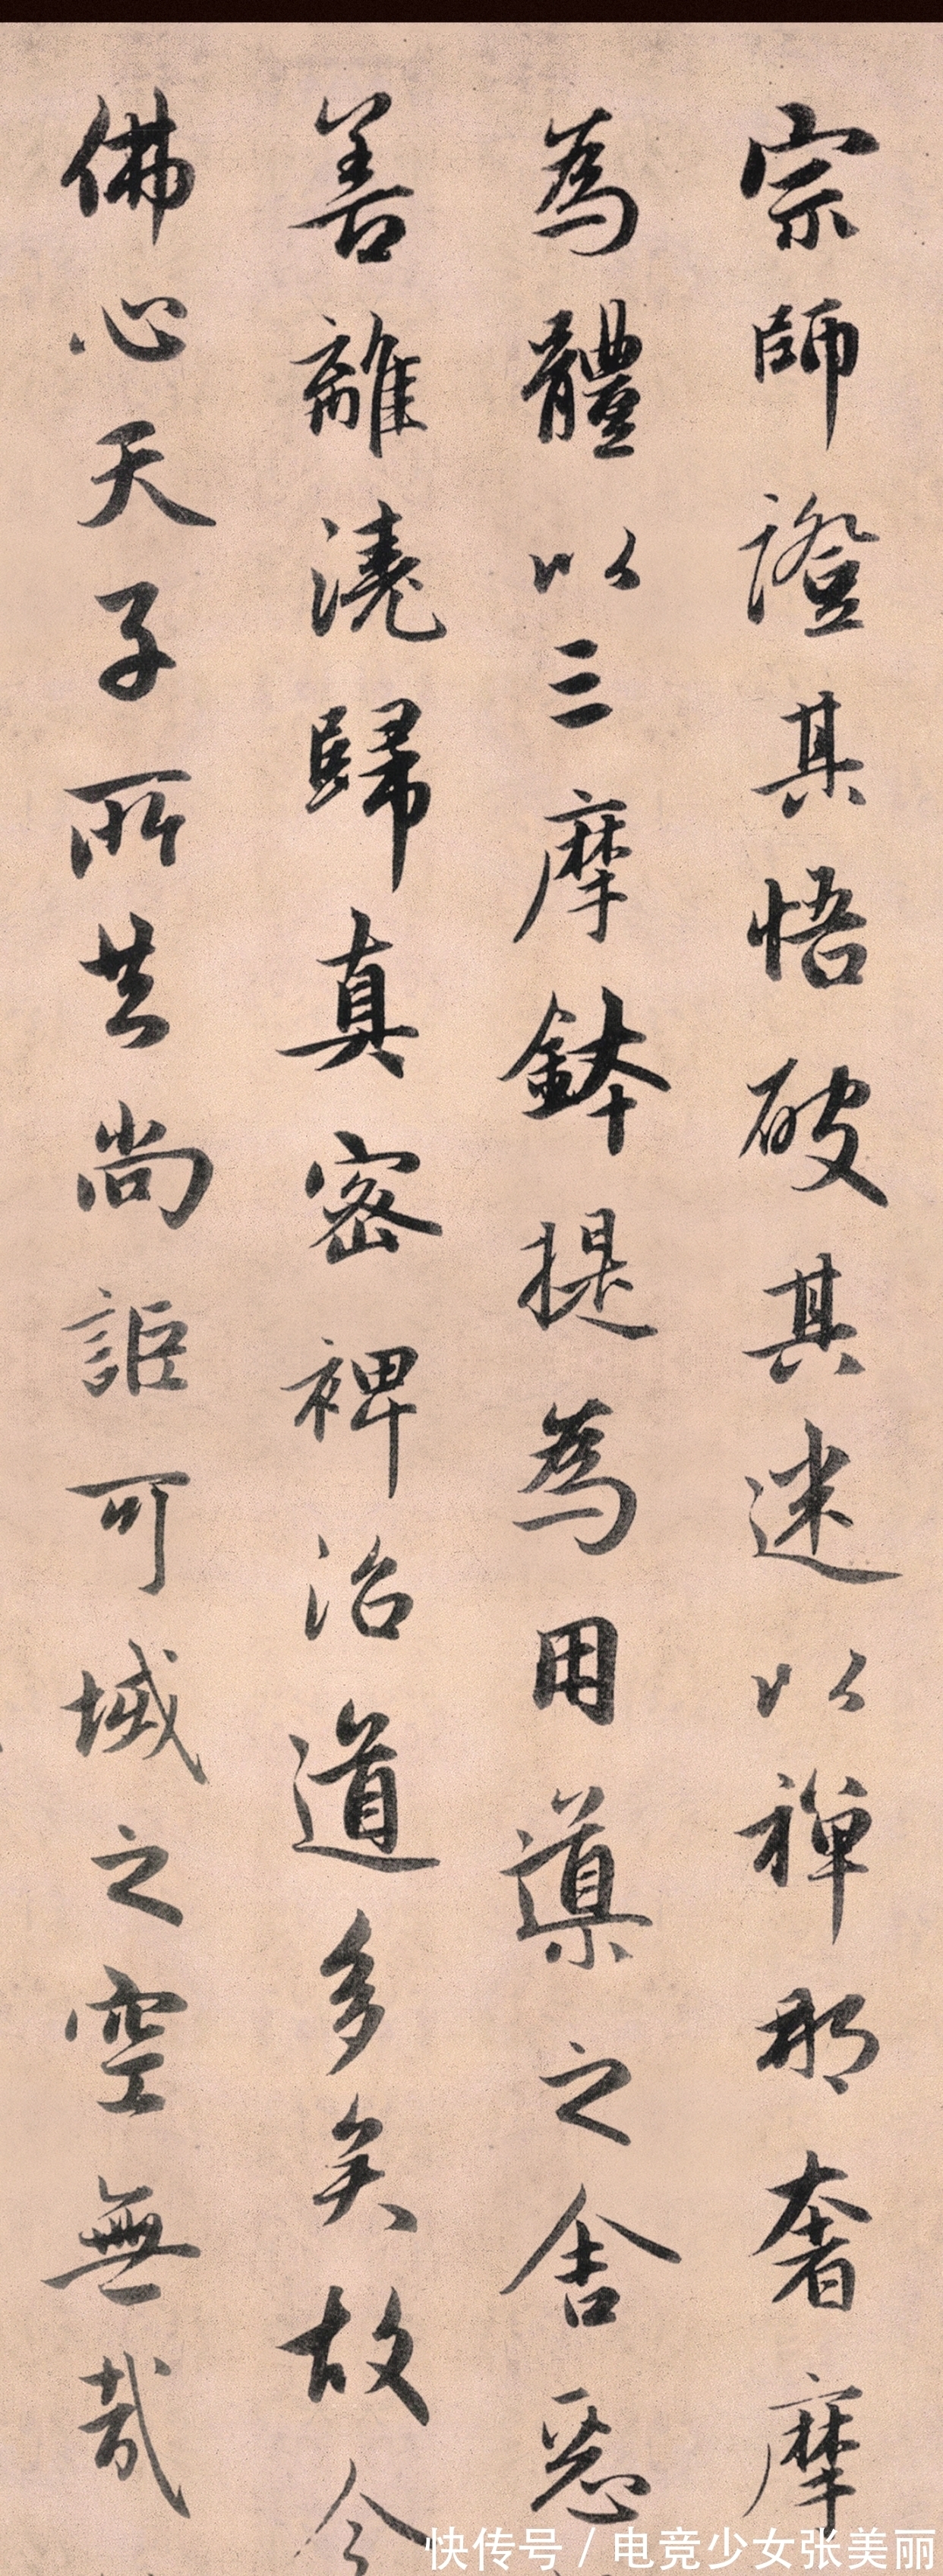 宗師證其悟破其迷以禪那奢摩
為體以三摩鉢提為用導之舍惡
善離澆歸真密裨治道多矣故今
佛心天子所共尚詎可域之空無哉
快传号 / 电竞少女张美丽